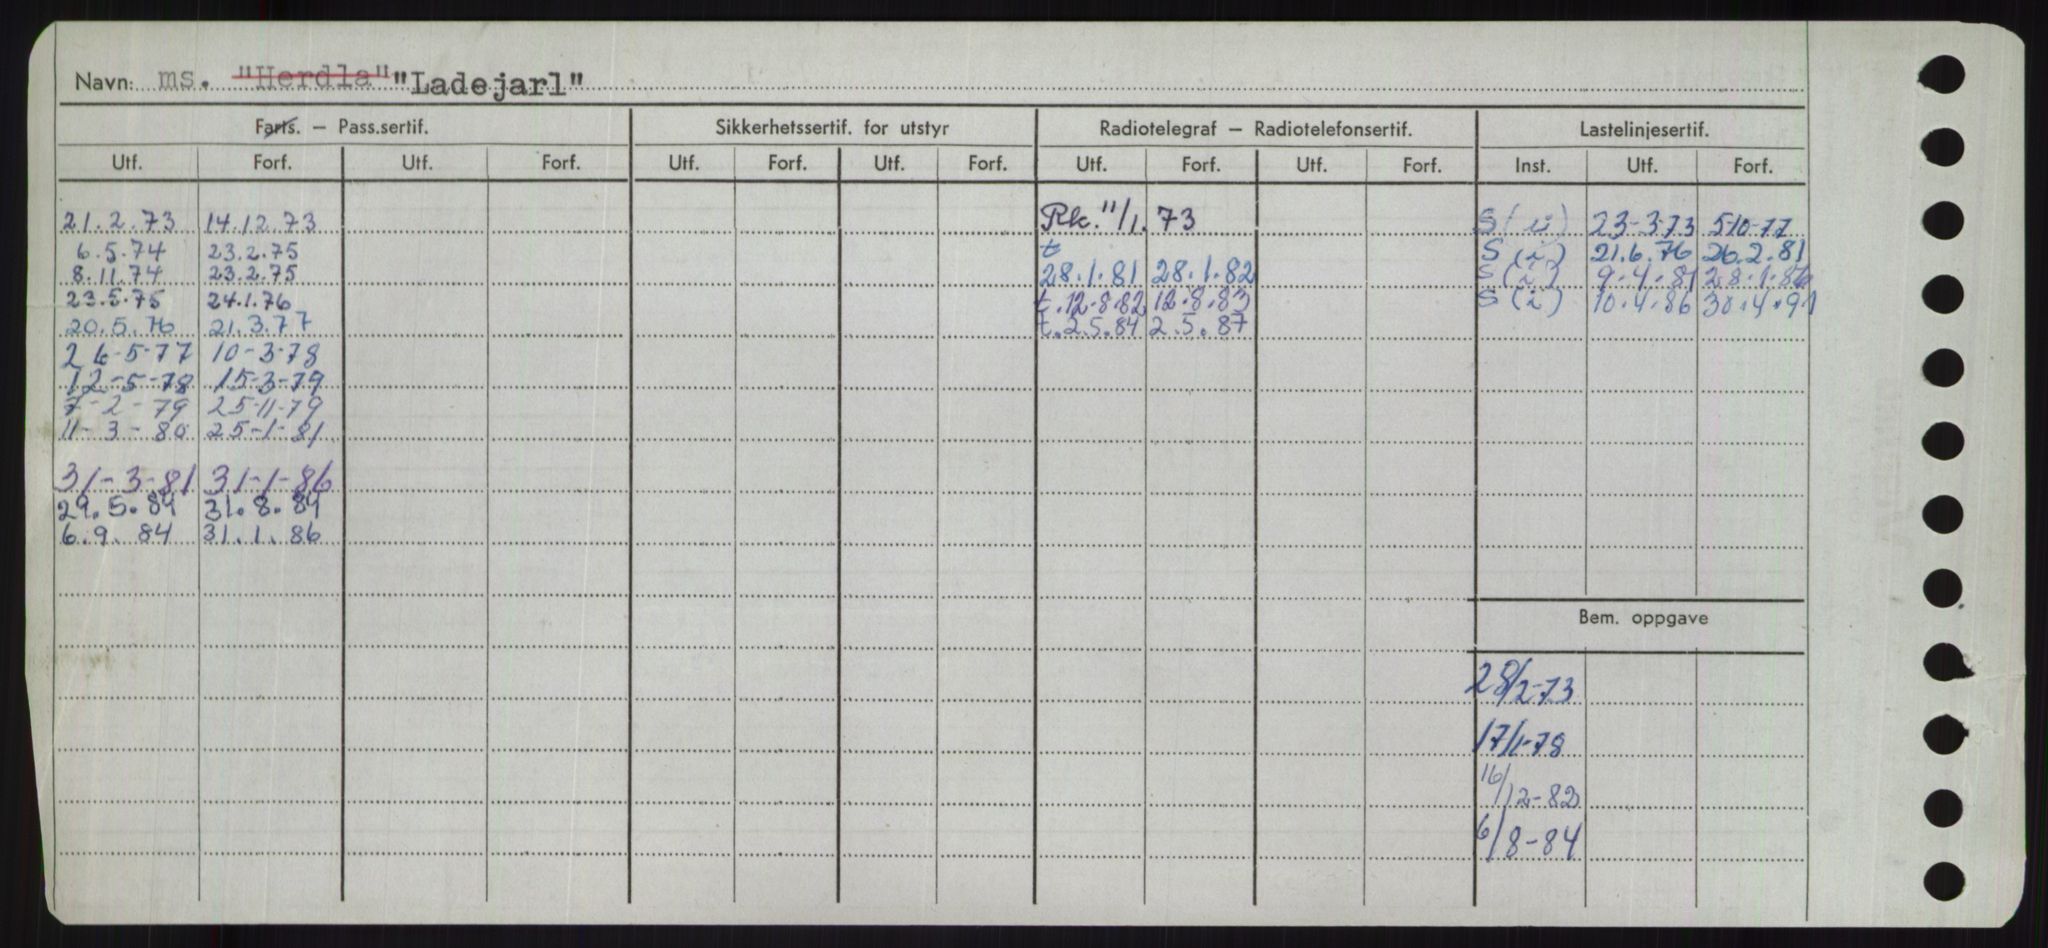 Navn: ms. "Herdla" "Ladejarl"
Farts. – Pass.sertif. Sikkerhetssertif. for utstyr Radiotelegraf – Radiotelefonsertif. Lastelinjesertif.
Utf. Forf. Utf. Forf. Utf. Forf. Utf. Forf. Utf. Forf. Utf. Forf. Inst. Utf. Forf.
21.2.73 14.12.73 Rk. 11/1.73 S (i) 23-3-73 5-10-77
6.5.74 23.2.75 t S (i) 21.6.76 26.2.81
8.11.74 23.2.75 28.1.81 28.1.82 S (i) 9.4.81 28.1.86
23.5.75 24.1.76 t.12.8.82 12.8.83 S (i) 10.4.86 30.4.91
20.5.76 21.3.77 t.2.5.84 2.5.87
26-5-77 10-3-78
12-5-78 15-3-79
7-2-79 25-11-79
11-3-80 25-1-81
31-3-81 31-1-86
29.5.84 31.8.84
6.9.84 31.1.86
Bem. oppgave
28/2-73
17/1-78
16/12-82
6/8-84